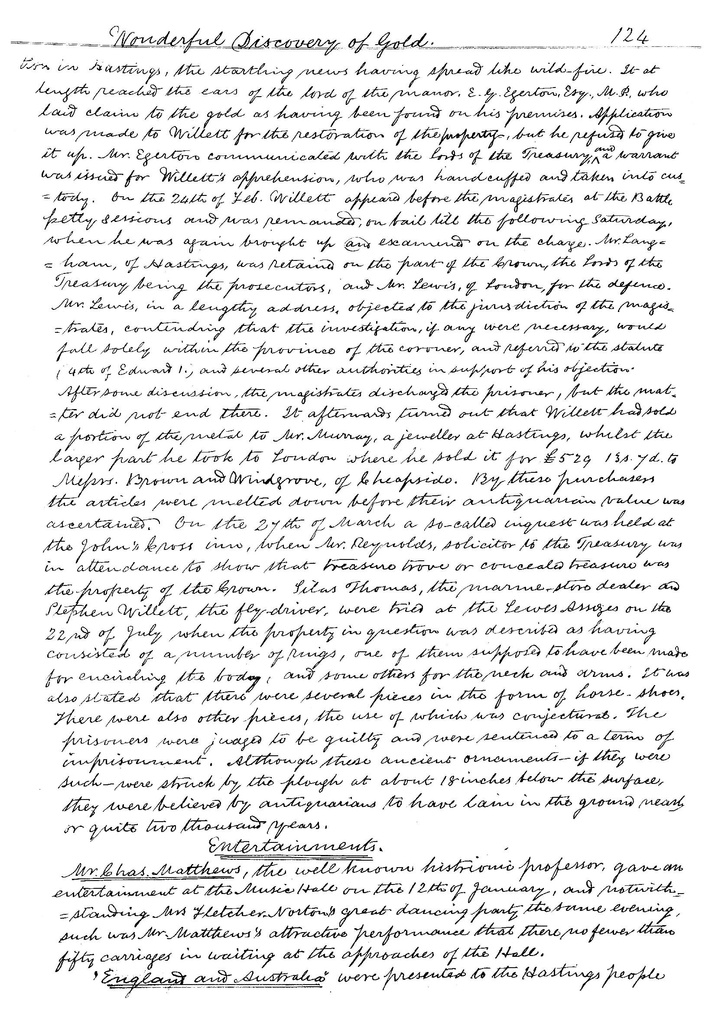 Wonderful Discovery of Gold. 124
in Hastings, the startling news having spread like wild-fire. It at
length reached the ears of the lord of the manor. E. G. Egerton, Esq., M.P., who
laid claim to the gold as having been found on his premises. Application
was made to Willett for the restoration of the property, but he refused to give
it up. Mr. Egerton communicated with the Lords of the Treasury, and a warrant
was issued for Willett's apprehension, who was handcuffed and taken into cus-
=tody. On the 24th of Feb. Willett appeard before the magistrates at the Battle
petty sessions and was remanded, on bail till the following Saturday,
when he was again brought up and examined on the charge. Mr. Lang-
=ham, of Hastings, was retained on the part of the Crown, the Lords of the
Treasury being the prosecutors, and Mr. Lewis, of London, for the defence.
Mr. Lewis, in a lengthy address, objected to the jurisdiction of the magis-
=trates, contending that the investigation, if any were necessary, would
fall solely within the province of the coroner, and referred to the statute
(4th of Edward 1.) and several other authorities in support of his objection.
After some discussion, the magistrates discharged the prisoner, but the mat-
=ter did not end there. It afterwards turned out that Willett had sold
a portion of the metal to Mr. Murray, a jeweller at Hastings, whilst the
larger part he took to London where he sold it for £529 13s. 7d. to
Messrs. Brown and Windgrove, of Cheapside. By these purchasers
the articles were melted down before their antiquarian value was
ascertained. On the 27th of March a so-called inquest was held at
the John's Cross inn, when Mr. Reynolds, solicitor to the Treasury was
in attendance to show that treasure trove or concealed treasure was
the property of the Crown. Silas Thomas, the marine-store dealer and
Stephen Willett, the fly-driver, were tried at the Lewes Assizes on the
22nd of July when the property in question was described as having
consisted of a number of rings, one of them supposed to have been made
for encircling the body, and some others for the neck and arms. It was
also stated that there were several pieces in the form of horse-shoes.
There were also other pieces, the use of which was conjectural. The
prisoners were judged to be guilty and were sentenced to a term of
imprisonment. Although these ancient ornaments—if they were
such—were struck by the plough at about 18 inches below the surface,
they were believed by antiquarians to have lain in the ground nearly
or quite two thousand years.
Entertainments.
Mr. Chas. Matthews, the well known histrionic professor, gave an
entertainment at the Music Hall on the 12th of January, and notwith-
=standing Mrs Fletcher-Norton's great dancing party the same evening,
such was Mr. Matthews's attractive performance that there no fewer than
fifty carriages in waiting at the approaches of the Hall.
"England and Australia" were presented to the Hastings people